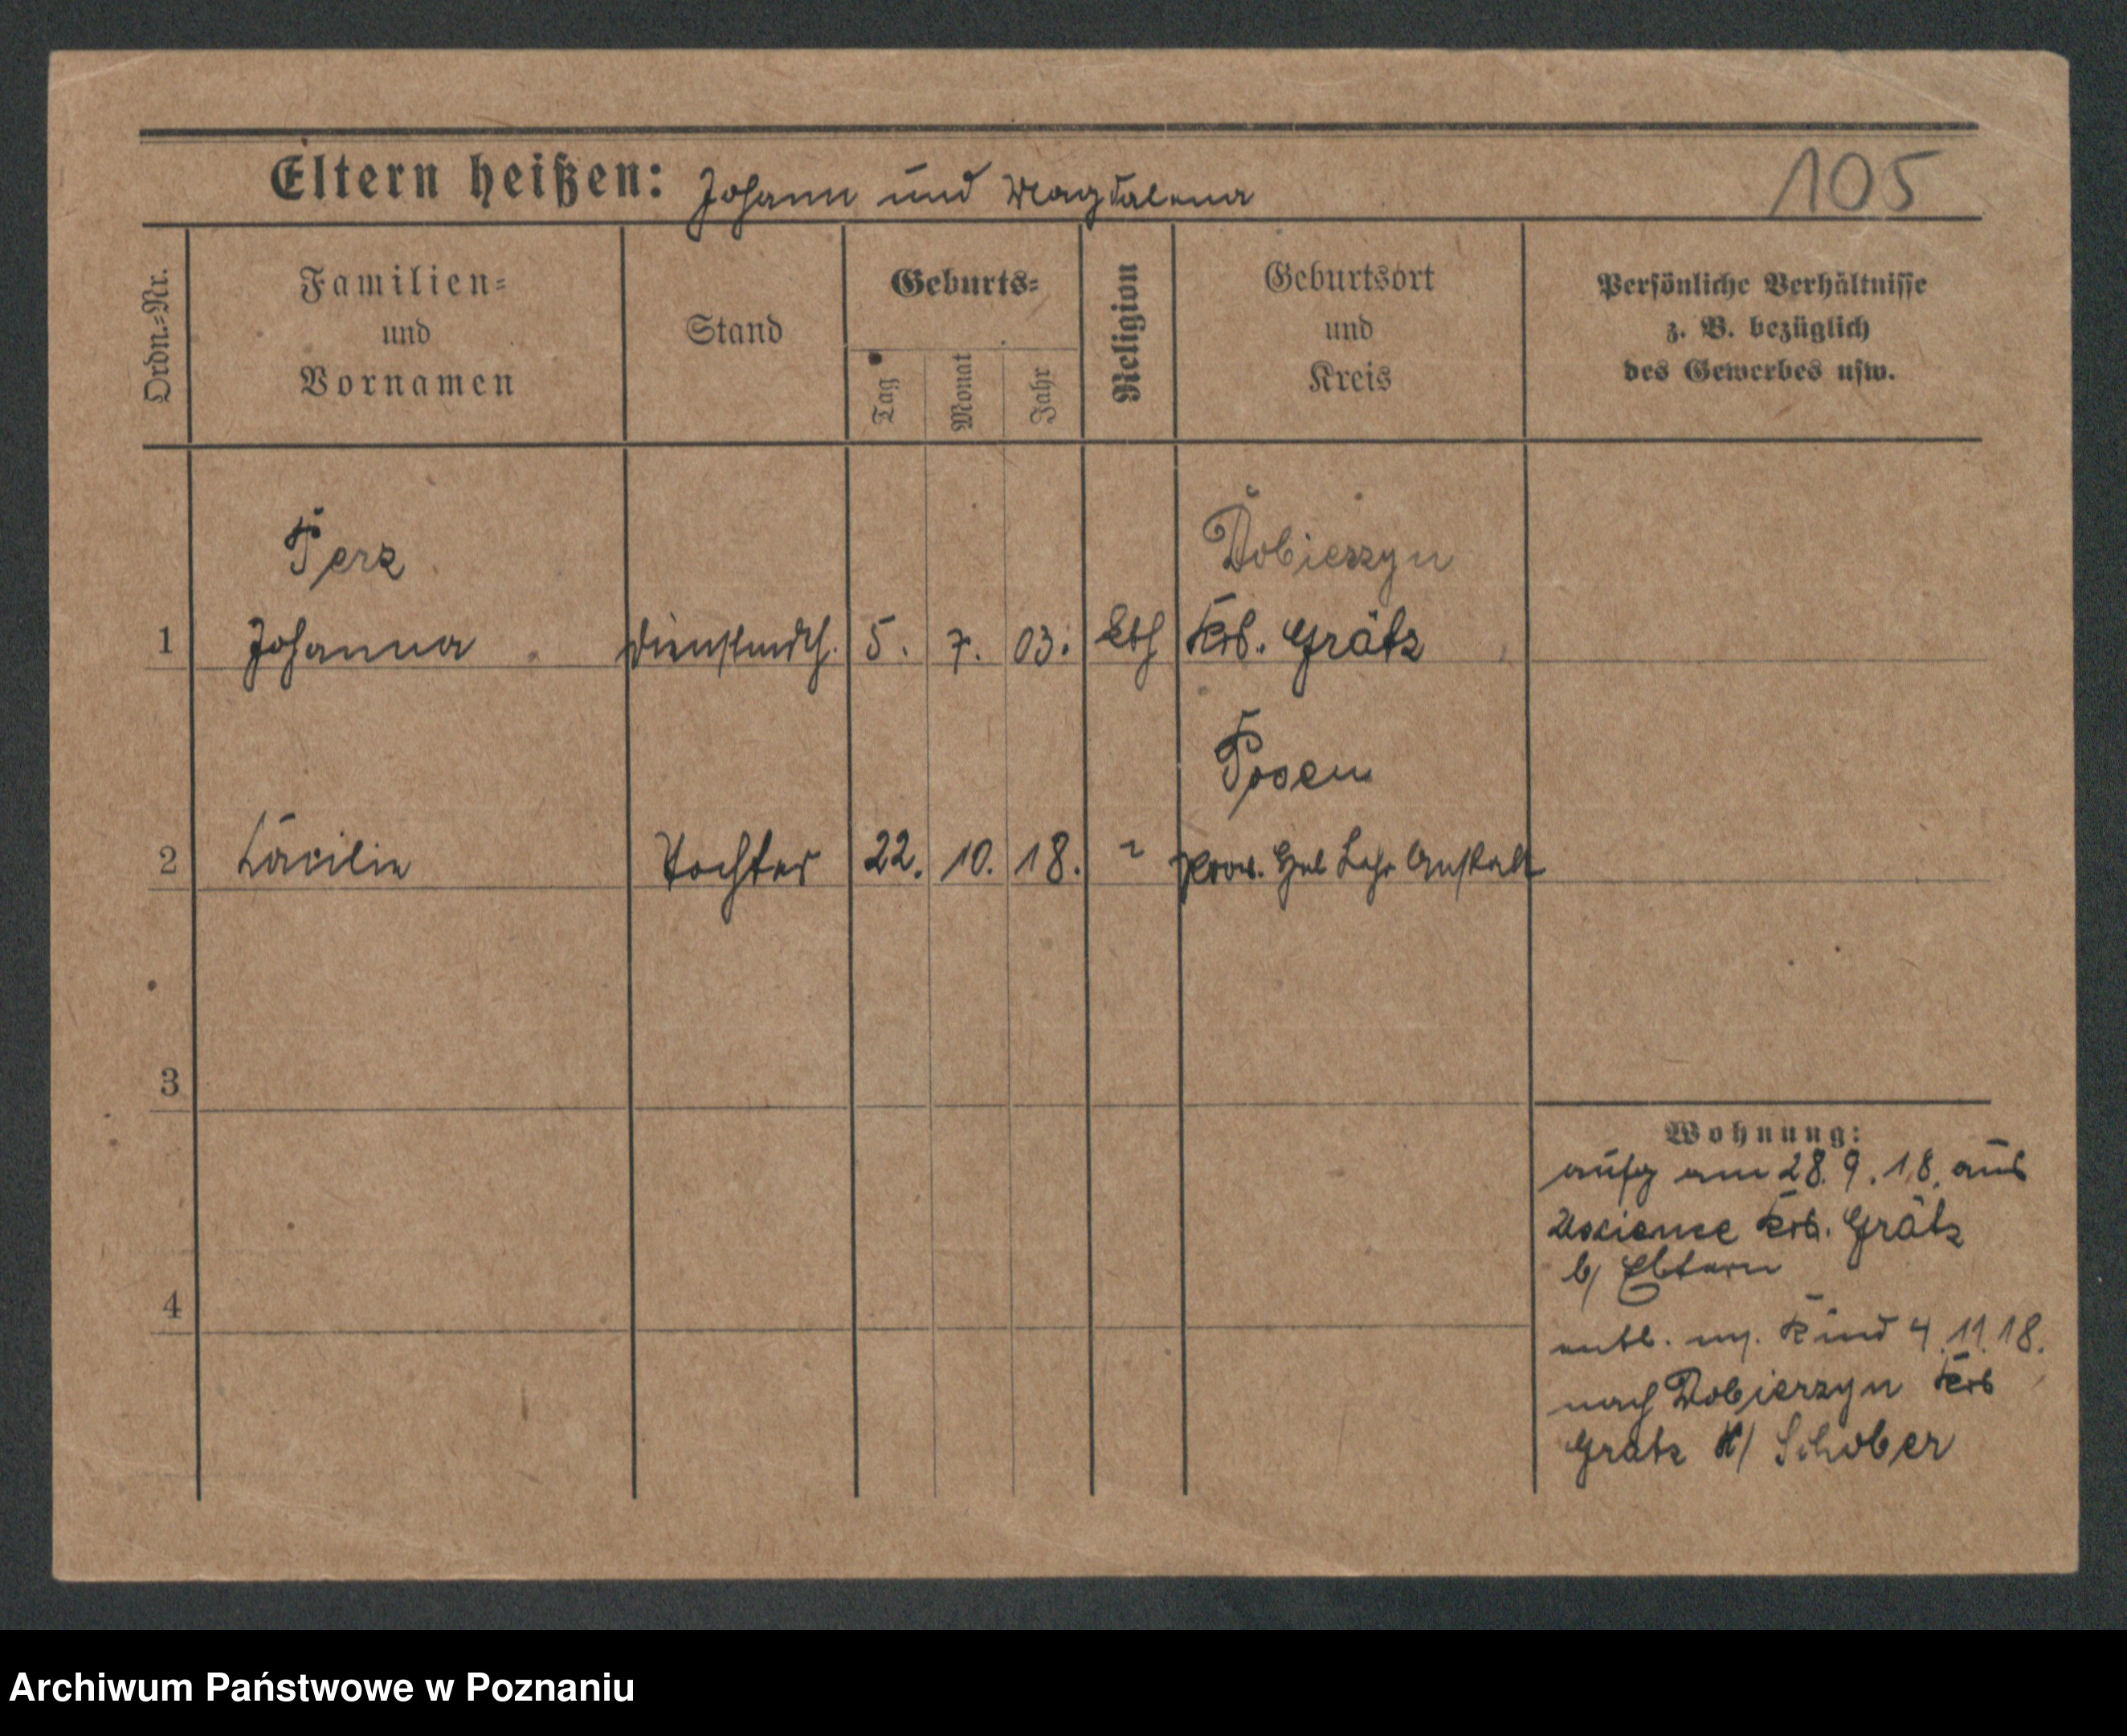 Eltern heißen: Johann und Magdalena
105
Ordn.=Nr.
Familien=
und
Vornamen
Stand
Geburts=
Tag
Monat
Jahr
Religion
Geburtsort
und
Kreis
Persönliche Verhältnisse
z. B. bezüglich
des Gewerbes usw.
Perz
Dobierzyn
1 Johanna Dienstmdch. 5. 7. 03. kth Krs. Grätz
Posen
2 Cäcilie Tochter 22. 10. 18. " Prov. Heb Lehr Anstalt
3
4
Wohnung:
aufg am 28.9.18. aus
Krs. Grätz
b/ Eltern
entl. m. Kind 4.11.18.
nach Dobierzyn Krs
Grätz b/ Schober
Archiwum Państwowe w Poznaniu